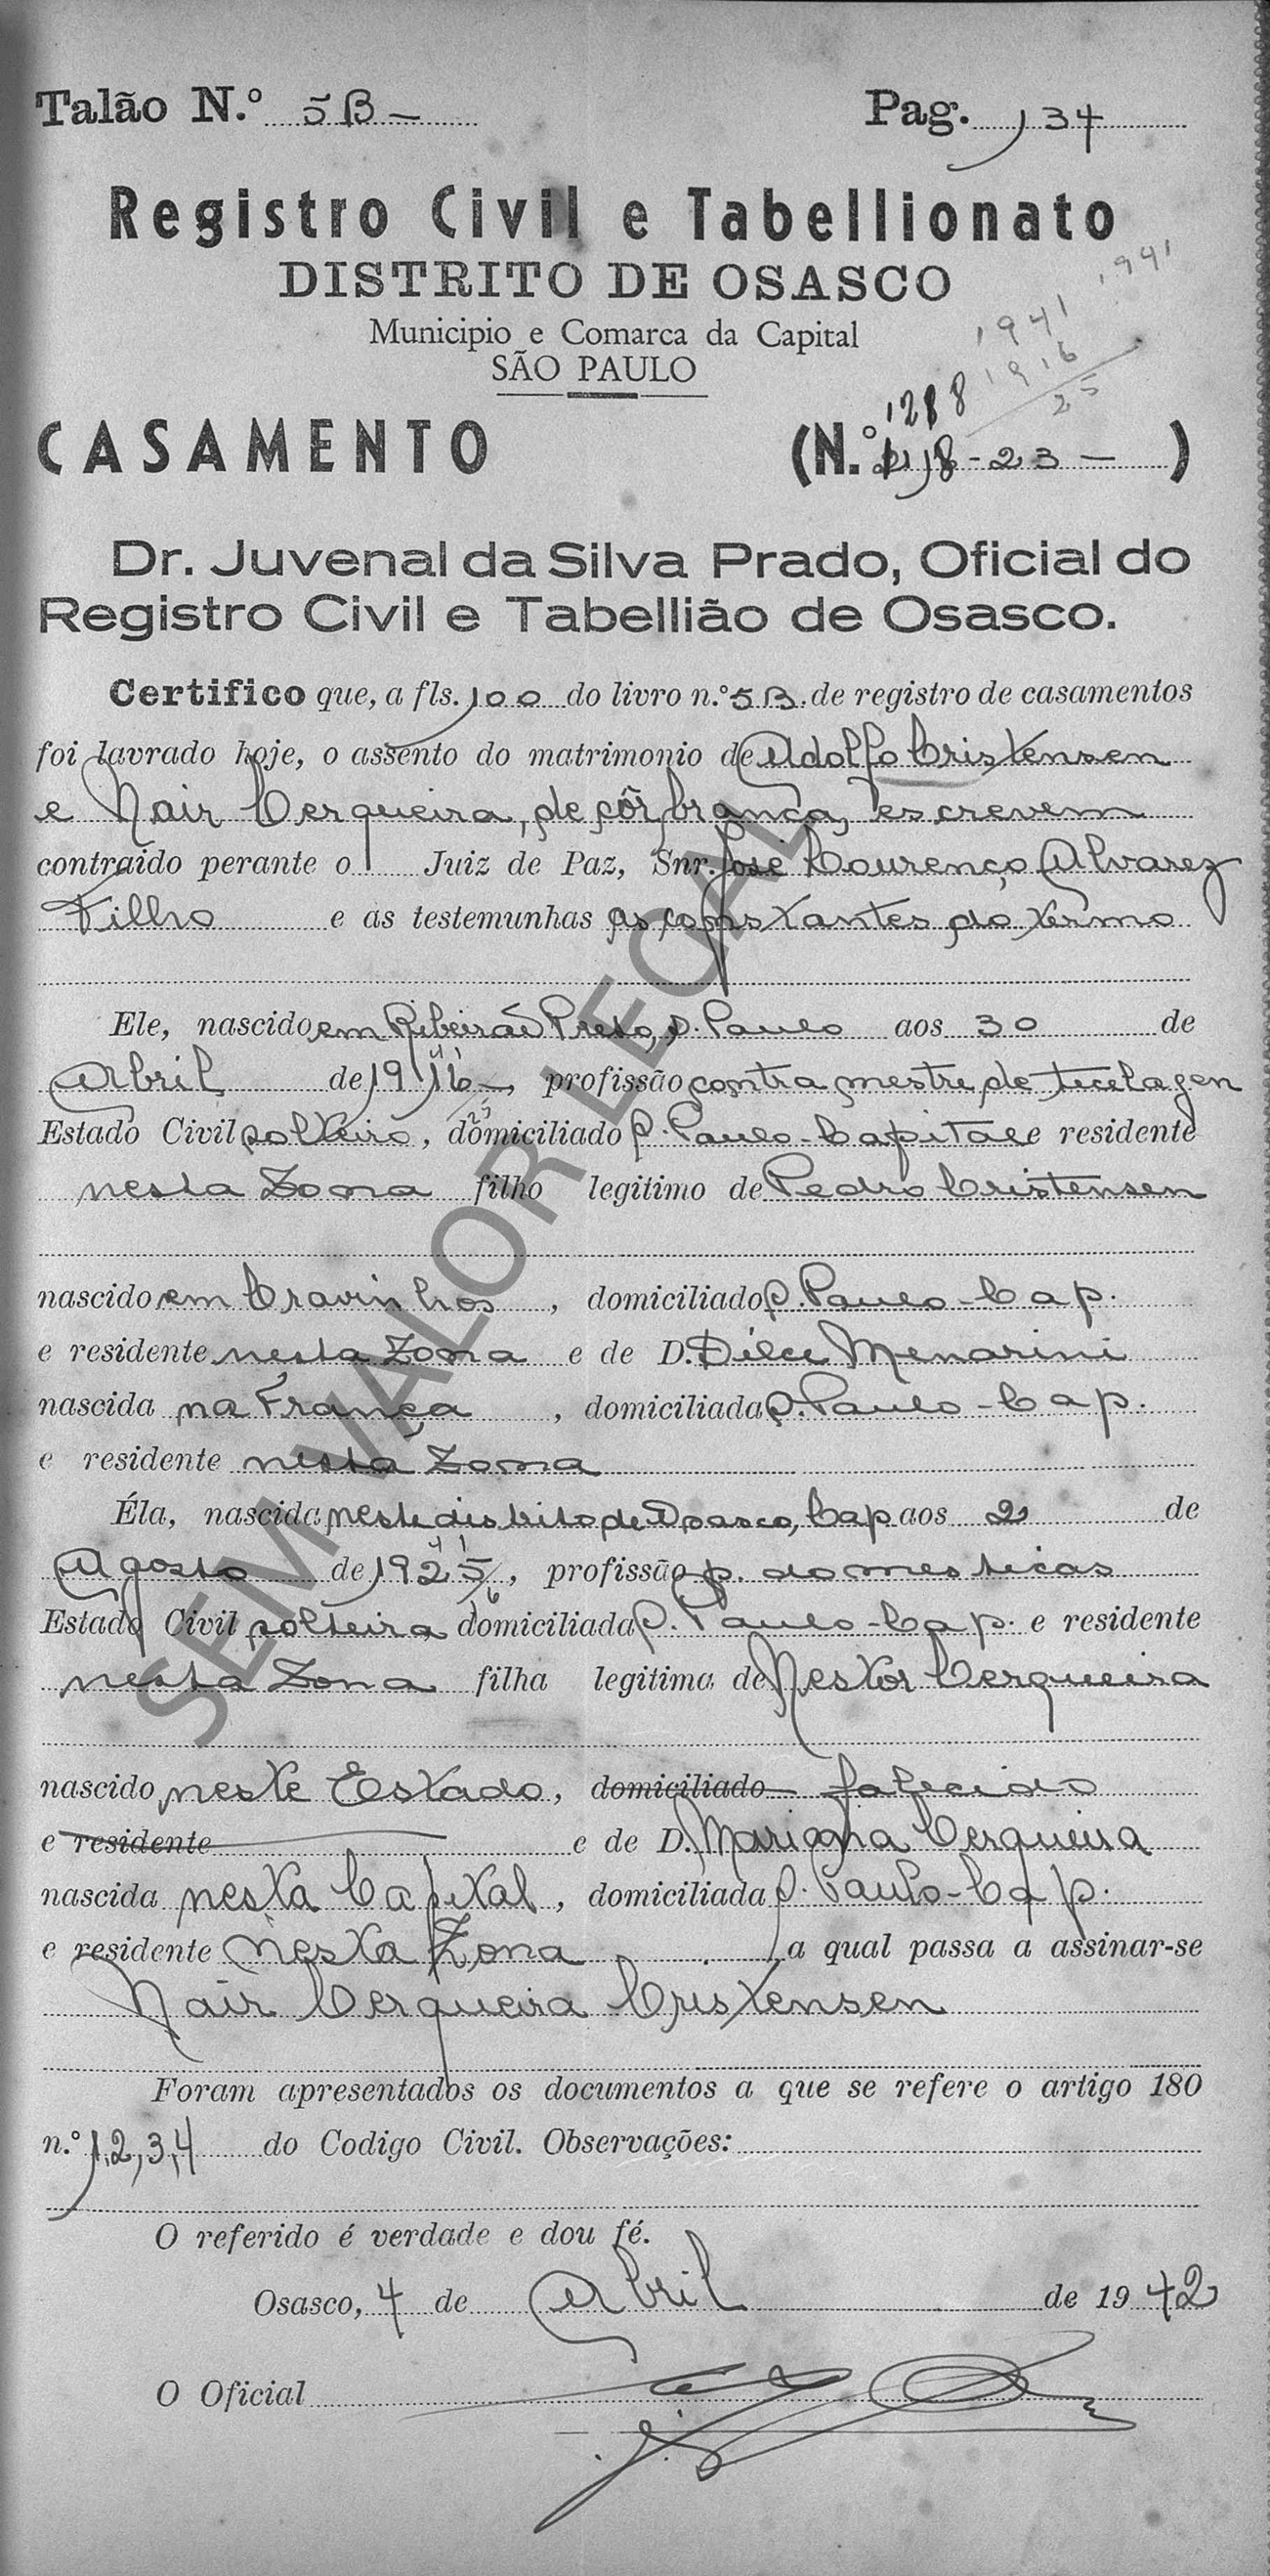 Talão N.º 5B- Pag. 134
Registro Civil e Tabellionato
DISTRITO DE OSASCO
1941
Municipio e Comarca da Capital
1941
SÃO PAULO
1916
25
1288
CASAMENTO (N.º 18-23-)
Dr. Juvenal da Silva Prado, Oficial do
Registro Civil e Tabellião de Osasco.
Certifico que, a fls. 100 do livro n.º 5B. de registro de casamentos
foi lavrado hoje, o assento do matrimonio de Adolfo Cristensen
e Nair Cerqueira, de côr branca, escrevem
contraído perante o Juiz de Paz, Snr. José Lourenço Alvarez
Filho e as testemunhas as constantes do termo
Ele, nascido em Ribeirão Preto, S. Paulo aos 30 de
Abril de 1916-, profissão contra mestre de tecelagen
Estado Civil solteiro, domiciliado S. Paulo-Capital e residente
nesta Zona filho legitimo de Pedro Cristensen
nascido em Cravinhos, domiciliado S. Paulo-Cap.
e residente nesta Zona e de D. Dilce Menarini
nascida na França, domiciliada S. Paulo-Cap.
e residente nesta Zona
Éla, nascida neste distrito de Osasco, Cap aos 2 de
Agosto de 1925, profissão p. domesticas
Estado Civil solteira, domiciliada S. Paulo-Cap. e residente
nesta Zona filha legitima de Nestor Cerqueira
nascido neste Estado, domiciliado falecido
e residente e de D. Marianna Cerqueira
nascida nesta Capital, domiciliada S. Paulo-Cap.
e residente nesta Zona, a qual passa a assinar-se
Nair Cerqueira Cristensen
Foram apresentados os documentos a que se refere o artigo 180
n.º 1,2,3,4 do Codigo Civil. Observações:
O referido é verdade e dou fé.
Osasco, 4 de Abril de 1942
O Oficial
SEM VALOR LEGAL